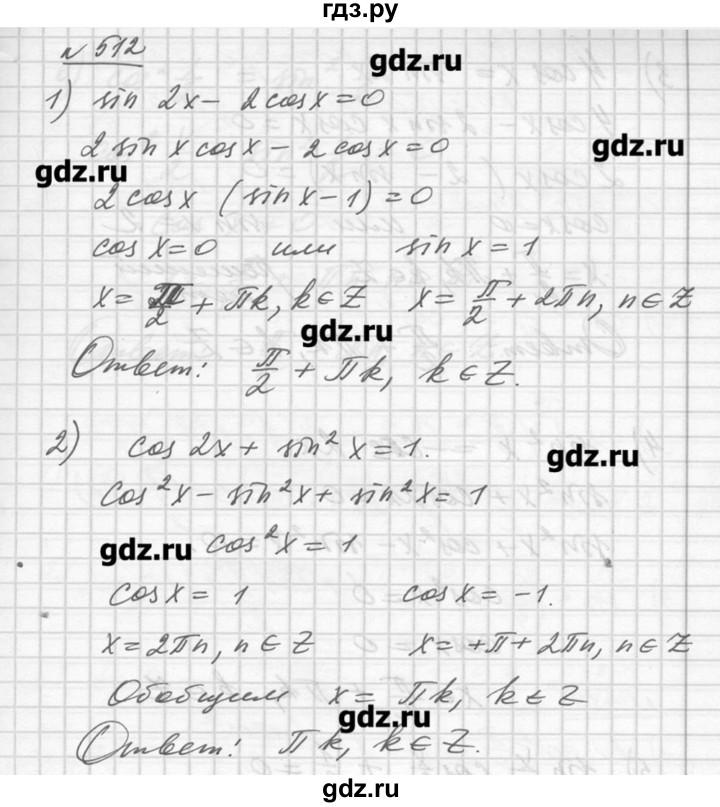 гдз.ру
№ 512
gdz.ru
1) sin 2x - 2cosx = 0
gdz.ru
2 sin x cosx - 2 cosx = 0
gdz.ru
2 cosx (sinx - 1) = 0
cos x = 0 или sin x = 1
x = π/2 + πk, k ∈ Z x = π/2 + 2πn, n ∈ Z
gdz.ru
Ответ: π/2 + πk, k ∈ Z.
2) cos 2x + sin² x = 1.
gdz.ru
cos²x - sin²x + sin²x = 1
gdz.ru cos²x = 1
cosx = 1 cosx = -1.
x = 2πn, n ∈ Z x = +π + 2πn, n ∈ Z
Обобщим x = πk, k ∈ Z
gdz.ru
Ответ: πk, k ∈ Z.
gdz.ru